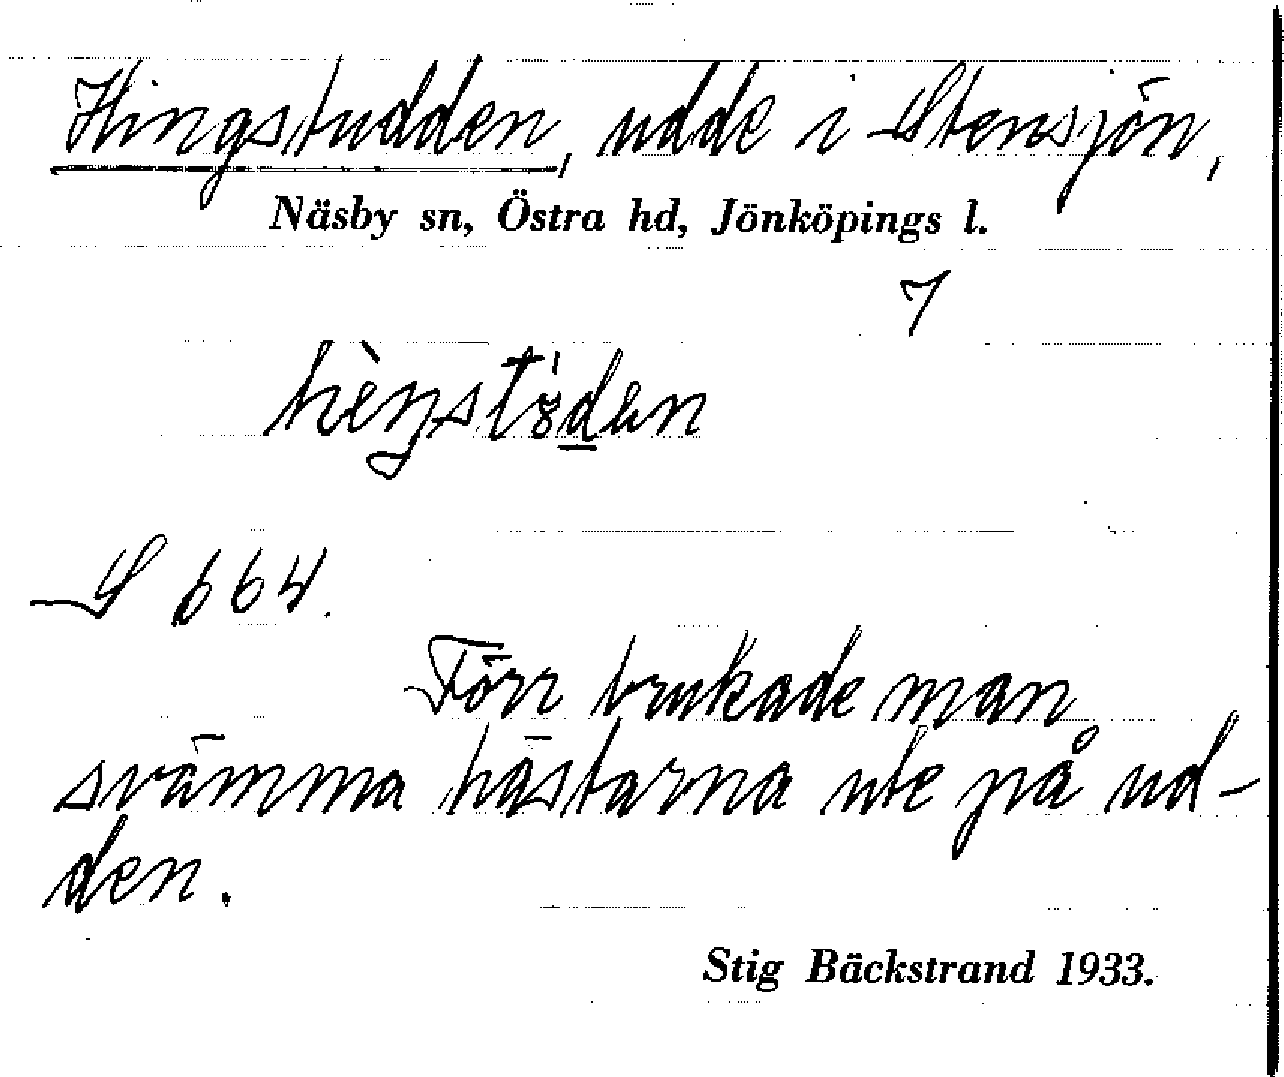 Hingstudden, udde i Stensjön,
Näsby sn, Östra hd, Jönköpings l.
7
S 664.
Förr brukade man
svämma hästarna ute på ud-
den.
Stig Bäckstrand 1933.